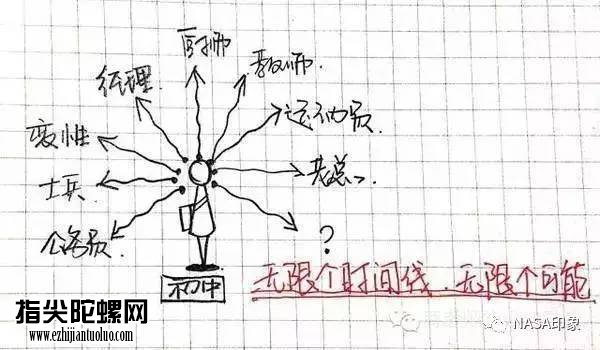 厨师
教师
经理
运动员
变性
老总
士兵
公务员
?
初中
无限个时间线.无限个可能
指尖陀螺网
www.ezhijiantuoluo.com
NASA印象